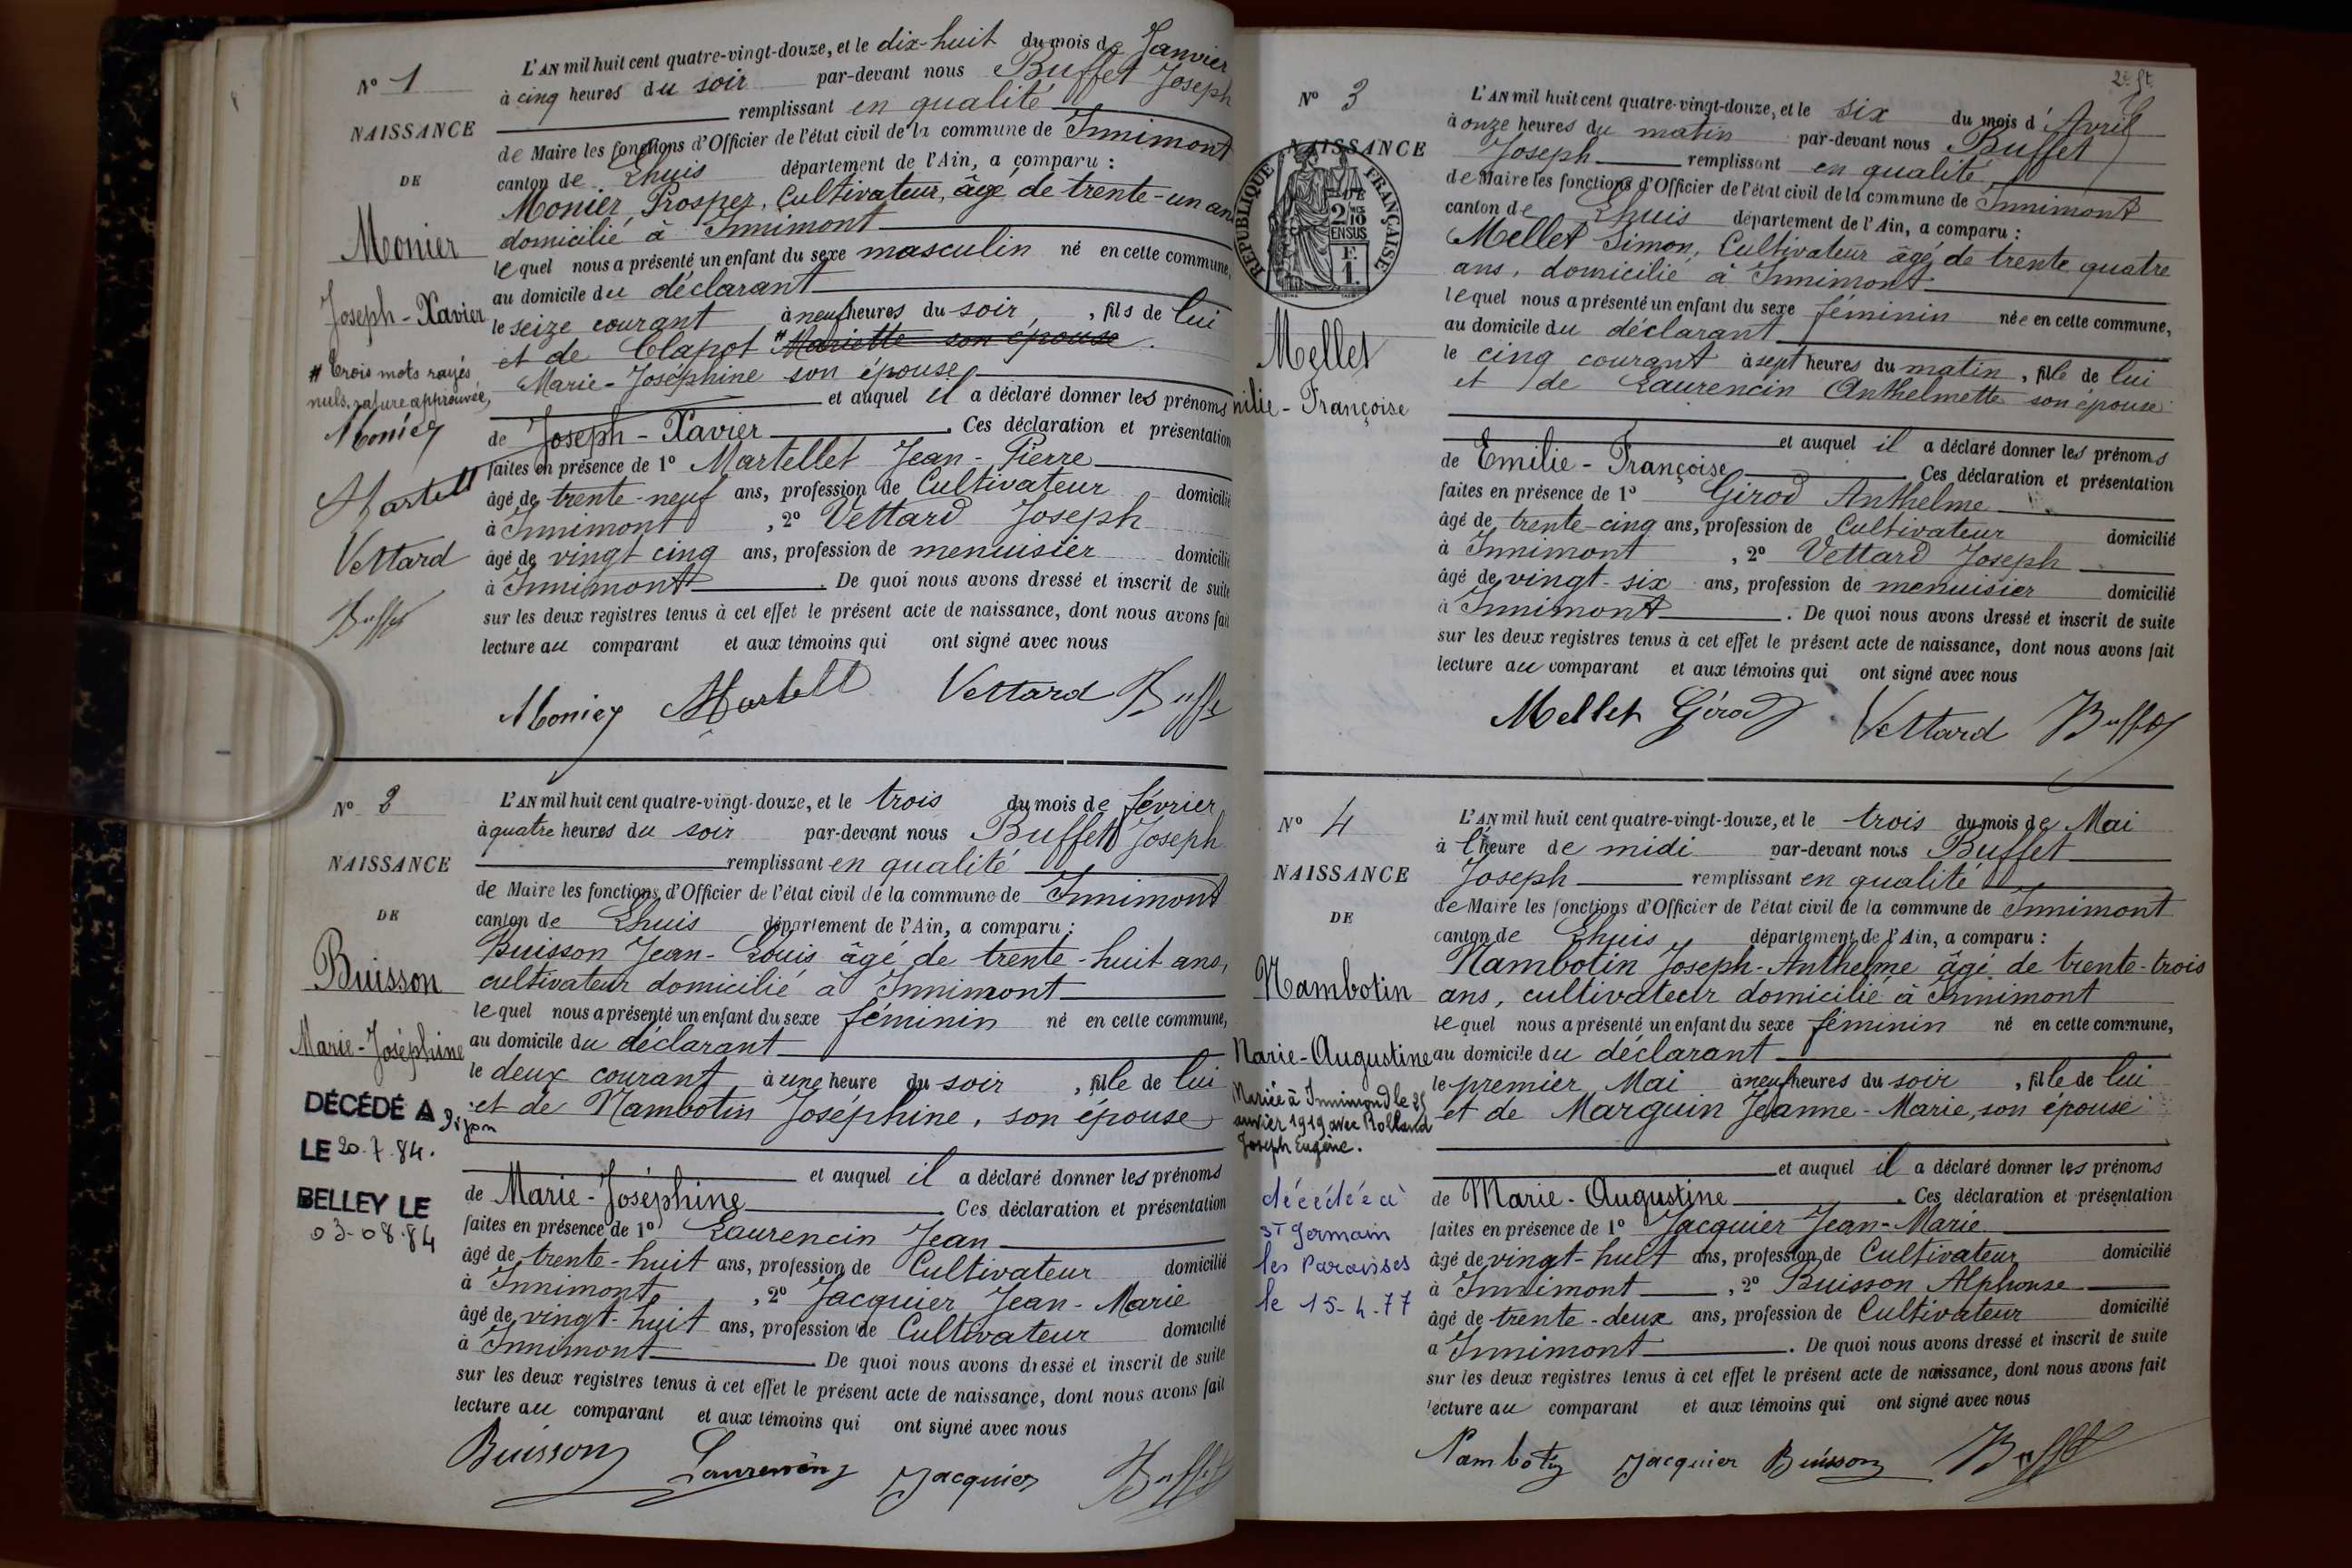 N° 1
NAISSANCE
DE
Monier
Joseph-Xavier
# Trois mots rayés
nuls, rature approuvée,
Monier
Martell
Vettard
Buffet
L'AN mil huit cent quatre-vingt-douze, et le dix-huit du mois de Janvier
à cinq heures du soir par-devant nous Buffet Joseph
remplissant en qualité
de Maire les fonctions d'Officier de l'état civil de la commune de Innimont
canton de Lhuis département de l'Ain, a comparu :
Monier Prosper, Cultivateur, âgé de trente-un an
domicilié à Innimont
lequel nous a présenté un enfant du sexe masculin né en cette commune,
au domicile du déclarant
le seize courant à neuf heures du soir, fils de lui
et de Clapot # Mariette son épouse.
Marie-Joséphine son épouse
et auquel il a déclaré donner les prénoms
de Joseph-Xavier. Ces déclaration et présentation
faites en présence de 1° Martellet Jean-Pierre
âgé de trente-neuf ans, profession de Cultivateur domicilié
à Innimont, 2° Vettard Joseph
âgé de vingt cinq ans, profession de menuisier domicilié
à Innimont. De quoi nous avons dressé et inscrit de suite
sur les deux registres tenus à cet effet le présent acte de naissance, dont nous avons fait
lecture au comparant et aux témoins qui ont signé avec nous
Monier Martell Vettard Buffe
N° 2
NAISSANCE
DE
Buisson
Marie-Joséphine
DÉCÉDÉ A Dijon
LE 20.7.84.
BELLEY LE
03-08.84
L'AN mil huit cent quatre-vingt-douze, et le trois du mois de février
à quatre heures du soir par-devant nous Buffet Joseph
remplissant en qualité
de Maire les fonctions d'Officier de l'état civil de la commune de Innimont
canton de Lhuis département de l'Ain, a comparu :
Buisson Jean-Louis âgé de trente-huit ans,
cultivateur domicilié à Innimont
lequel nous a présenté un enfant du sexe féminin né en cette commune,
au domicile du déclarant
le deux courant à une heure du soir, fille de lui
et de Nambotin Joséphine, son épouse
et auquel il a déclaré donner les prénoms
de Marie-Joséphine Ces déclaration et présentation
faites en présence de 1° Laurencin Jean
âgé de trente-huit ans, profession de Cultivateur domicilié
à Innimont, 2° Jacquier Jean-Marie
âgé de vingt-huit ans, profession de Cultivateur domicilié
à Innimont De quoi nous avons dressé et inscrit de suite
sur les deux registres tenus à cet effet le présent acte de naissance, dont nous avons fait
lecture au comparant et aux témoins qui ont signé avec nous
Buisson Laurencin Jacquier Buffet
2e ft
N° 3
NAISSANCE
DE
RÉPUBLIQUE FRANÇAISE
2/10 EN SUS
F.
1.
Mellet
milie-Françoise
L'AN mil huit cent quatre-vingt-douze, et le six du mois d'Avril
à onze heures du matin par-devant nous Buffet
Joseph remplissant en qualité
de Maire les fonctions d'Officier de l'état civil de la commune de Innimont
canton de Lhuis département de l'Ain, a comparu :
Mellet Simon, Cultivateur âgé de trente quatre
ans, domicilié à Innimont
lequel nous a présenté un enfant du sexe féminin née en cette commune,
au domicile du déclarant
le cinq courant à sept heures du matin, fille de lui
et de Laurencin Anthelmette son épouse
et auquel il a déclaré donner les prénoms
de Emilie-Françoise. Ces déclaration et présentation
faites en présence de 1° Girod Anthelme
âgé de trente-cinq ans, profession de Cultivateur domicilié
à Innimont, 2° Vettard Joseph
âgé de vingt-six ans, profession de menuisier domicilié
à Innimont. De quoi nous avons dressé et inscrit de suite
sur les deux registres tenus à cet effet le présent acte de naissance, dont nous avons fait
lecture au comparant et aux témoins qui ont signé avec nous
Mellet Girod Vettard Buffet
N° 4
NAISSANCE
DE
Nambotin
Marie-Augustine
Mariée à Innimond le 25
anvier 1919 avec Rolland
Joseph Eugène.
décédée à
St Germain
les Paroisses
le 15-4-77
L'AN mil huit cent quatre-vingt-douze, et le trois du mois de Mai
à l'heure de midi par-devant nous Buffet
Joseph remplissant en qualité
de Maire les fonctions d'Officier de l'état civil de la commune de Innimont
canton de Lhuis département de l'Ain, a comparu :
Nambotin Joseph-Anthelme âgé de trente-trois
ans, cultivateur domicilié à Innimont
lequel nous a présenté un enfant du sexe féminin né en cette commune,
au domicile du déclarant
le premier Mai à neuf heures du soir, fille de lui
et de Marguin Jeanne-Marie, son épouse
et auquel il a déclaré donner les prénoms
de Marie-Augustine. Ces déclaration et présentation
faites en présence de 1° Jacquier Jean-Marie
âgé de vingt-huit ans, profession de Cultivateur domicilié
à Innimont, 2° Buisson Alphonse
âgé de trente-deux ans, profession de Cultivateur domicilié
a Innimont. De quoi nous avons dressé et inscrit de suite
sur les deux registres tenus à cet effet le présent acte de naissance, dont nous avons fait
lecture au comparant et aux témoins qui ont signé avec nous
Nambotin Jacquier Buisson Buffet